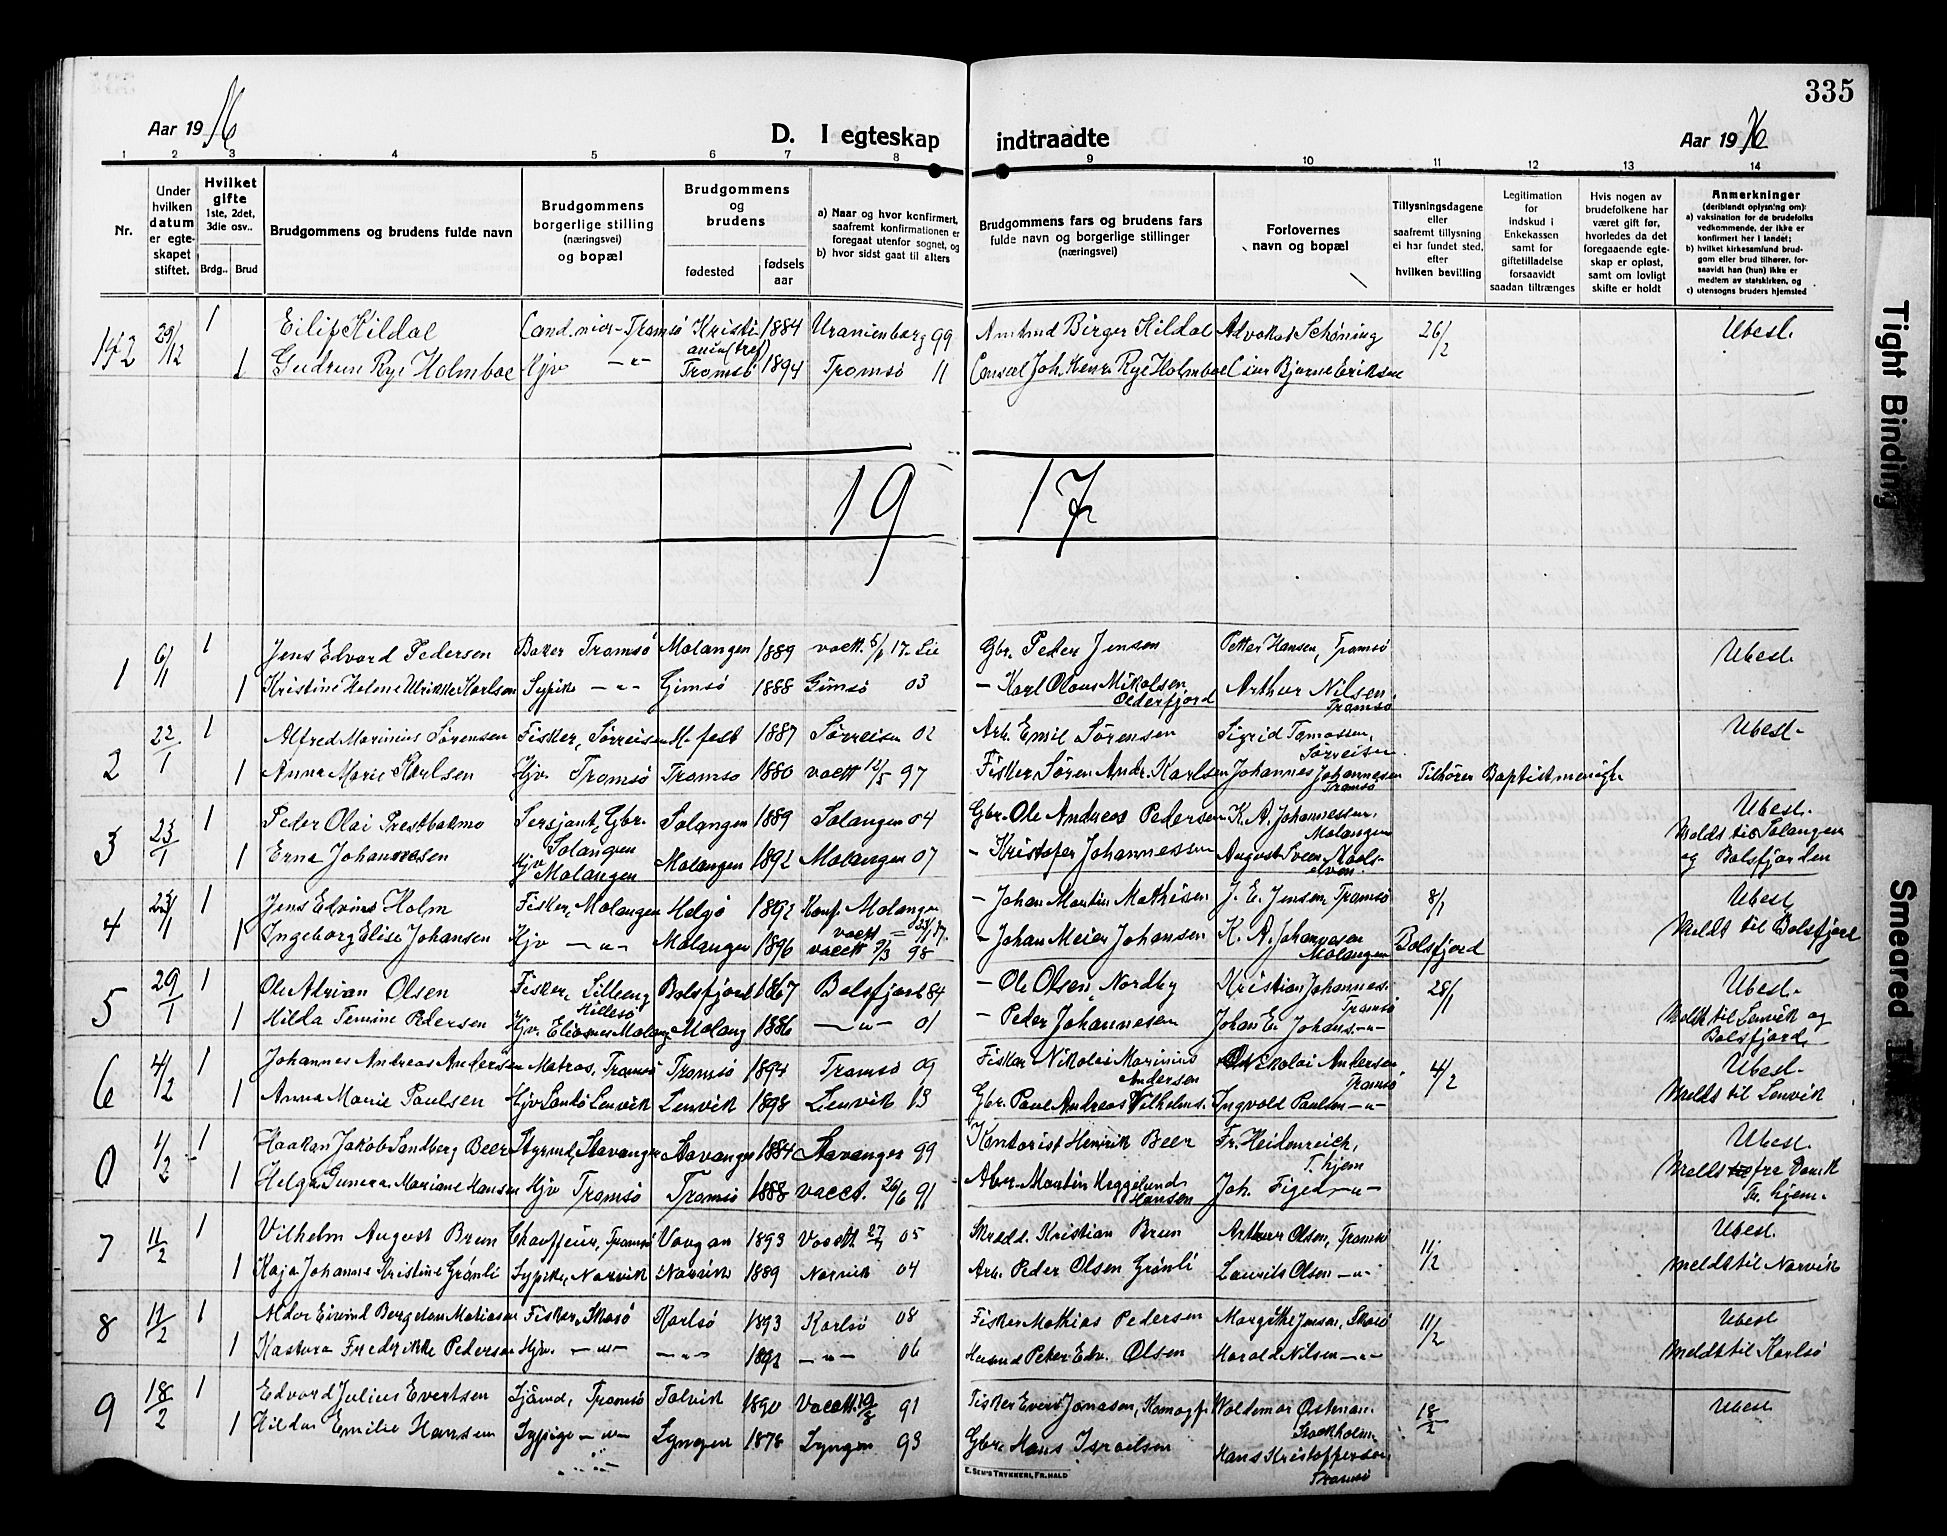 335
Aar 1916 D. I egteskap indtraadte Aar 1916
1 2 3 4 5 6 7 8 9 10 11 12 13 14
Nr.
Under hvilken datum er egteskapet stiftet.
Hvilket gifte 1ste, 2det, 3die osv..
Brdg.. Brud
Brudgommens og brudens fulde navn
Brudgommens borgerlige stilling (næringsvei) og bopæl
Brudgommens og brudens
fødested
fødsels aar
a) Naar og hvor konfirmert, saafremt konfirmationen er foregaat utenfor sognet, og
b) hvor sidst gaat til alters
Brudgommens fars og brudens fars fulde navn og borgerlige stillinger (næringsvei)
Forlovernes navn og bopæl
Tillysningsdagene eller saafremt tillysning ei har fundet sted, efter hvilken bevilling
Legitimation for indskud i Enkekassen samt for giftetilladelse forsaavidt saadan tiltrænges
Hvis nogen av brudefolkene har været gift før, hvorledes da det foregaaende egteskap er opløst, samt om lovligt skifte er holdt
Anmerkninger (deriblandt oplysning om):
a) vaksination for de brudefolks vedkommende, der ikke er konfirmert her i landet;
b) hvilket kirkesamfund brudgom eller brud tilhører, forsaavidt han (hun) ikke er medlem av statskirken, og
c) utensogns bruders hjemsted
152 29/12 1 Eilif Kildal Cand. Tromsø Kristiania 1884 Uranienborg 99 Amtmd Birger Kildal Advokat Schøning 26/2 Ubesl.
1 Gudrun Rye Holmboe Hjv -"- Tromsø 1894 Tromsø 11 Consul Joh. Henr. Rye Holmboe Bjarne Eriksen
1917
1 6/1 1 Jens Edvard Pedersen Baker Tromsø Malangen 1889 vacc. 17 Gbr. Peder Jensen Petter Hansen, Tromsø Ubesl.
1 Kristine Helene Ulrikke Karlsen Sypike -"- Gimsø 1888 Gimsø 03 - Karl Olaus Mikalsen Olderfjord Arthur Nilsen Tromsø
2 22/1 1 Alfred Marinius Sørensen Fisker, Sørreisen H.fest 1887 Sørreisen 02 Arb. Emil Sørensen Sigrid Tomassen, Sørreisen Ubesl.
1 Anna Marie Karlsen Hjv. Tromsø Tromsø 1880 vacc 97 Fisker Søren Andr. Karlsen Johannes Johannesen Tromsø Tilhører Baptistmenigh
3 23/1 1 Peder Olai Prestbakmo Sersjant, Gbr. Salangen Salangen 1889 Salangen 04 Gbr. Ole Andreas Pedersen K. A. Johannessen, Malangen Ubesl.
1 Erna Johannesen Hjv Malangen Malangen 1892 Malangen 07 - Kristofer Johannessen August Sveen Maalselven Meldt til Salangen og Balsfjorden
4 23/1 1 Jens Edvins Holm Fisker, Malangen Helgø 1892 Konf. Malangen - Johan Martin Mathisen J. E. Jensen Tromsø 8/1 Ubesl
1 Ingeborg Elise Johansen Hjv -"- Malangen 1896 vacc 9/3 98 - Johan Meier Johansen K. A. Johannesen Malangen Balsfjord Meldt til Balsfjord
5 29/1 1 Ole Adrian Olsen Fisker, Lilleng Hillesø Balsfjord 1867 Balsfjord 84 - Ole Olsen, Nordby Kristian Johannes. Tromsø 28/1 Ubesl.
1 Hilda Pedersen Hjv. Malang. Malang 1886 -"- 01 - Peder Johannesen Johan E. Johans. -"- Meldt til Lenvik og Balsfjord
6 4/2 1 Johannes Andreas Andersen Matros, Tromsø Tromsø 1894 Tromsø 09 Fisker Nikolai Marinius Andersen Nikolai Andersen Tromsø 4/2 Ubesl.
1 Anna Marie Paulsen Hjv Lenvik Lenvik 1898 Lenvik 13 Gbr. Paul Andreas Vilhelms. Ingvold Paulsen -"- Meldt til Lenvik
0 1/2 1 Haakon Jakob Sandberg Beer Styrmd, Stavanger Stavanger 1884 Stavanger 99 Kontorist Henrik Beer Fr. Heidenreich, T. hjem Ubesl.
1 Helga Gunera Mariane Hansen Hjv Tromsø Tromsø 1888 vacct. 26/6 91 Martin Heggelund Hansen Joh. -"- Meldt fra Vansk Fr. hjem.
7 11/2 1 Vilhelm August Brun Chauffeur, Tromsø Vaagan 1893 Vacct. 05 Skredd. Kristian Brun Arthur Olsen, Tromsø 11/2 Ubesl.
1 Kaja Johanne Kristine Grønli Sypike, Narvik Narvik 1889 Narvik 04 Arb. Peder Olsen Grønli Laurits Olsen -"- Meldt til Narvik
8 11/2 1 Eivind Mathiasen Fisker, Skarsø Karlsø 1893 Karlsø 08 Fisker Mathias Pedersen Margithe Jensen, 11/2 Ubesl
1 Kastora Fredrikke Pedersen Hjv. -"- -"- 1892 -"- 06 Peter Edv. Olsen Harald Nilsen -"- Meldt til Karlsø
9 18/2 1 Edvard Julius Evertsen Sjømd, Tromsø Talvik 1890 Vacct. 91 Fisker Evert Jonasen, Kamøyf. Waldemar Østman, Stockholm 18/2 Ubesl
1 Hilda Emilie Hansen Sypige -"- Lyngen 1878 Lyngen 93 Gbr. Hans Israelsen Hans Kristoffersen, Tromsø
E. SEM'S TRYKKERI, FR. HALD
Tight Binding
Smeared